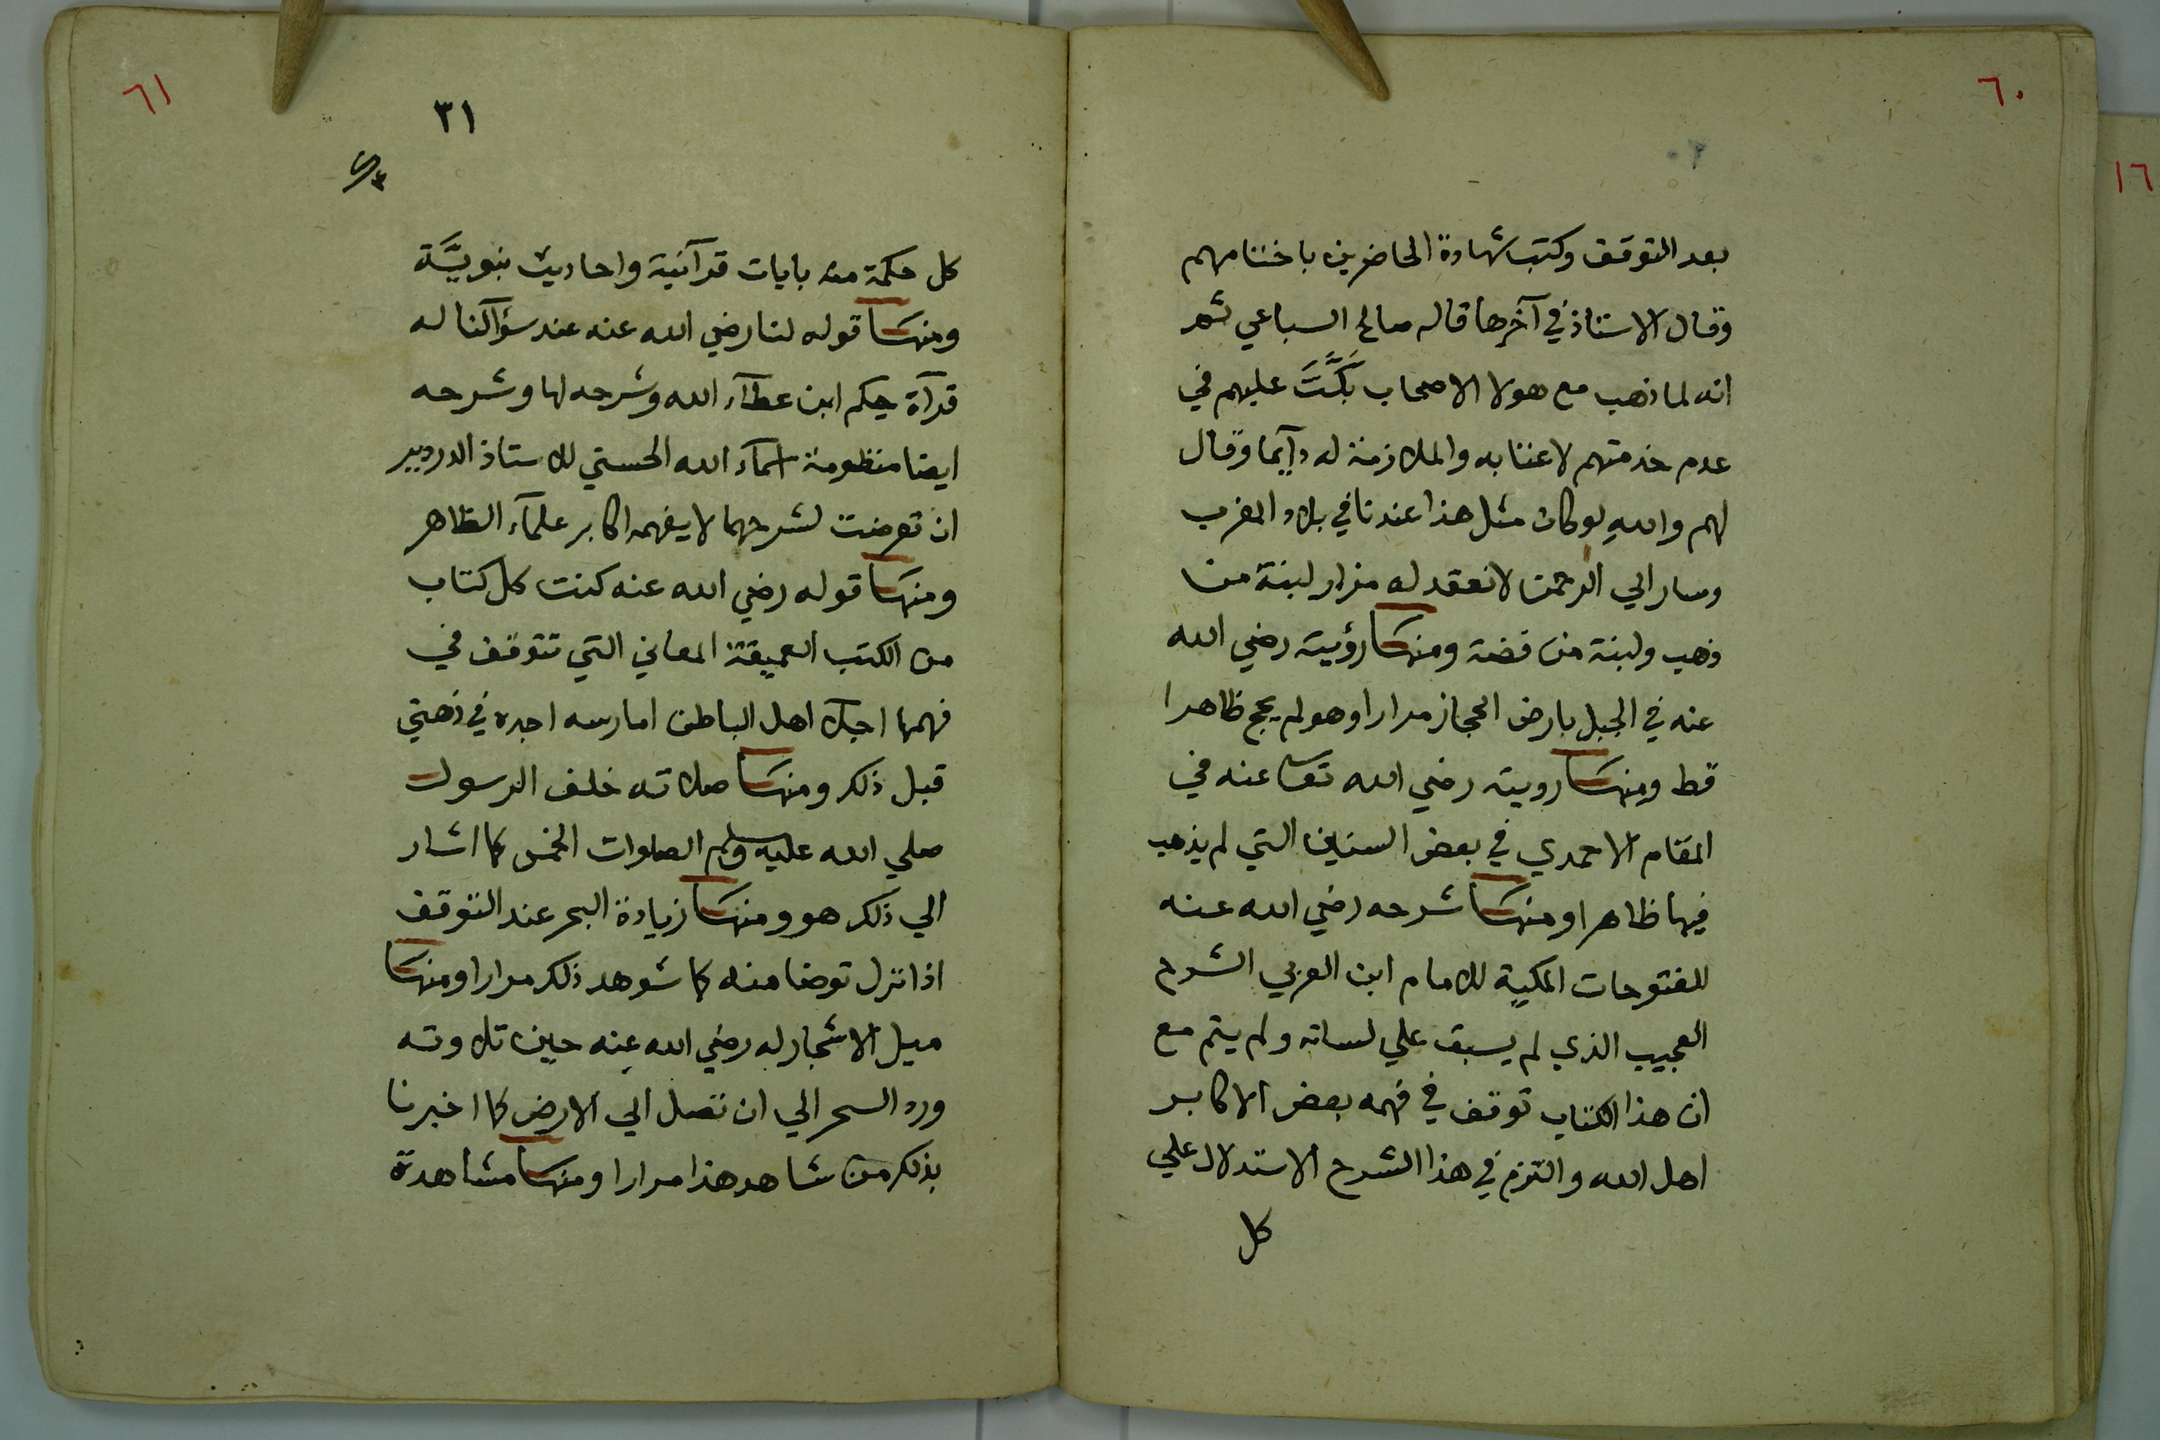 ٦٠
بعد التوقف وكتب شهادة الحاضرين باختتامهم
وقال الاستاذ في آخرها قاله صالح السباعي ثم
انه لما ذهب مع هولا الاصحاب بَكَّتَ عليهم في
عدم خدمتهم لاعتنا به والملازمة له دآيما وقال
لهم واللهِ لو كان مثل هذا عندنا في بلاد المغرب
وسار الي الرحمن لانعقد له مزار لبنة من
ذهب ولبنة من فضة ومنها رؤيته رضي الله
عنه في الجبل بارض الحجاز مرارا وهو لم يحج ظاهرا
قط ومنها رويته رضي الله تعا عنه في
المقام الاحمدي في بعض السنين التي لم يذهب
فيها ظاهرا ومنها شرحه رضي الله عنه
للفتوحات المكية للامام ابن العربي الشرح
العجيب الذي لم يسبق علي لسانه ولم يتم مع
ان هذا الكتاب توقف في فهمه بعض الاكابر
اهل الله والتزم في هذا الشرح الاستدلال علي
كل
٦١
٣١
كل حكمة منه بايات قرآنية واحاديث نبويَّة
ومنها قوله لنا رضي الله عنه عند سؤآلنا له
قرآة حِكم ابن عطآء الله وشرحه لها وشرحه
ايضا منظومة اسمآء الله الحسني للاستاذ الدردير
ان تعرضت لشرحهما لا يفهمه اكابر علمآء الظاهر
ومنها قوله رضي الله عنه كنت كل كتاب
من الكتب العميقة المعاني التي تتوقف في
فهمها اجلآ اهل الباطن امارسه اجده في ذهني
قبل ذلك ومنها صلاته خلف الرسول
صلي الله عليه وسلم الصلوات الخمس كما اشار
الي ذلك هو ومنها زيادة البحر عند التوقف
اذا نزل توضا منه كما شوهد ذلك مرارا ومنها
ميل الاشجار له رضي الله عنه حين تلاوته
ورد السحر الي ان تصل الي الارض كما اخبرنا
بذلك من شاهد هذا مرارا ومنها مشاهدة
١٦